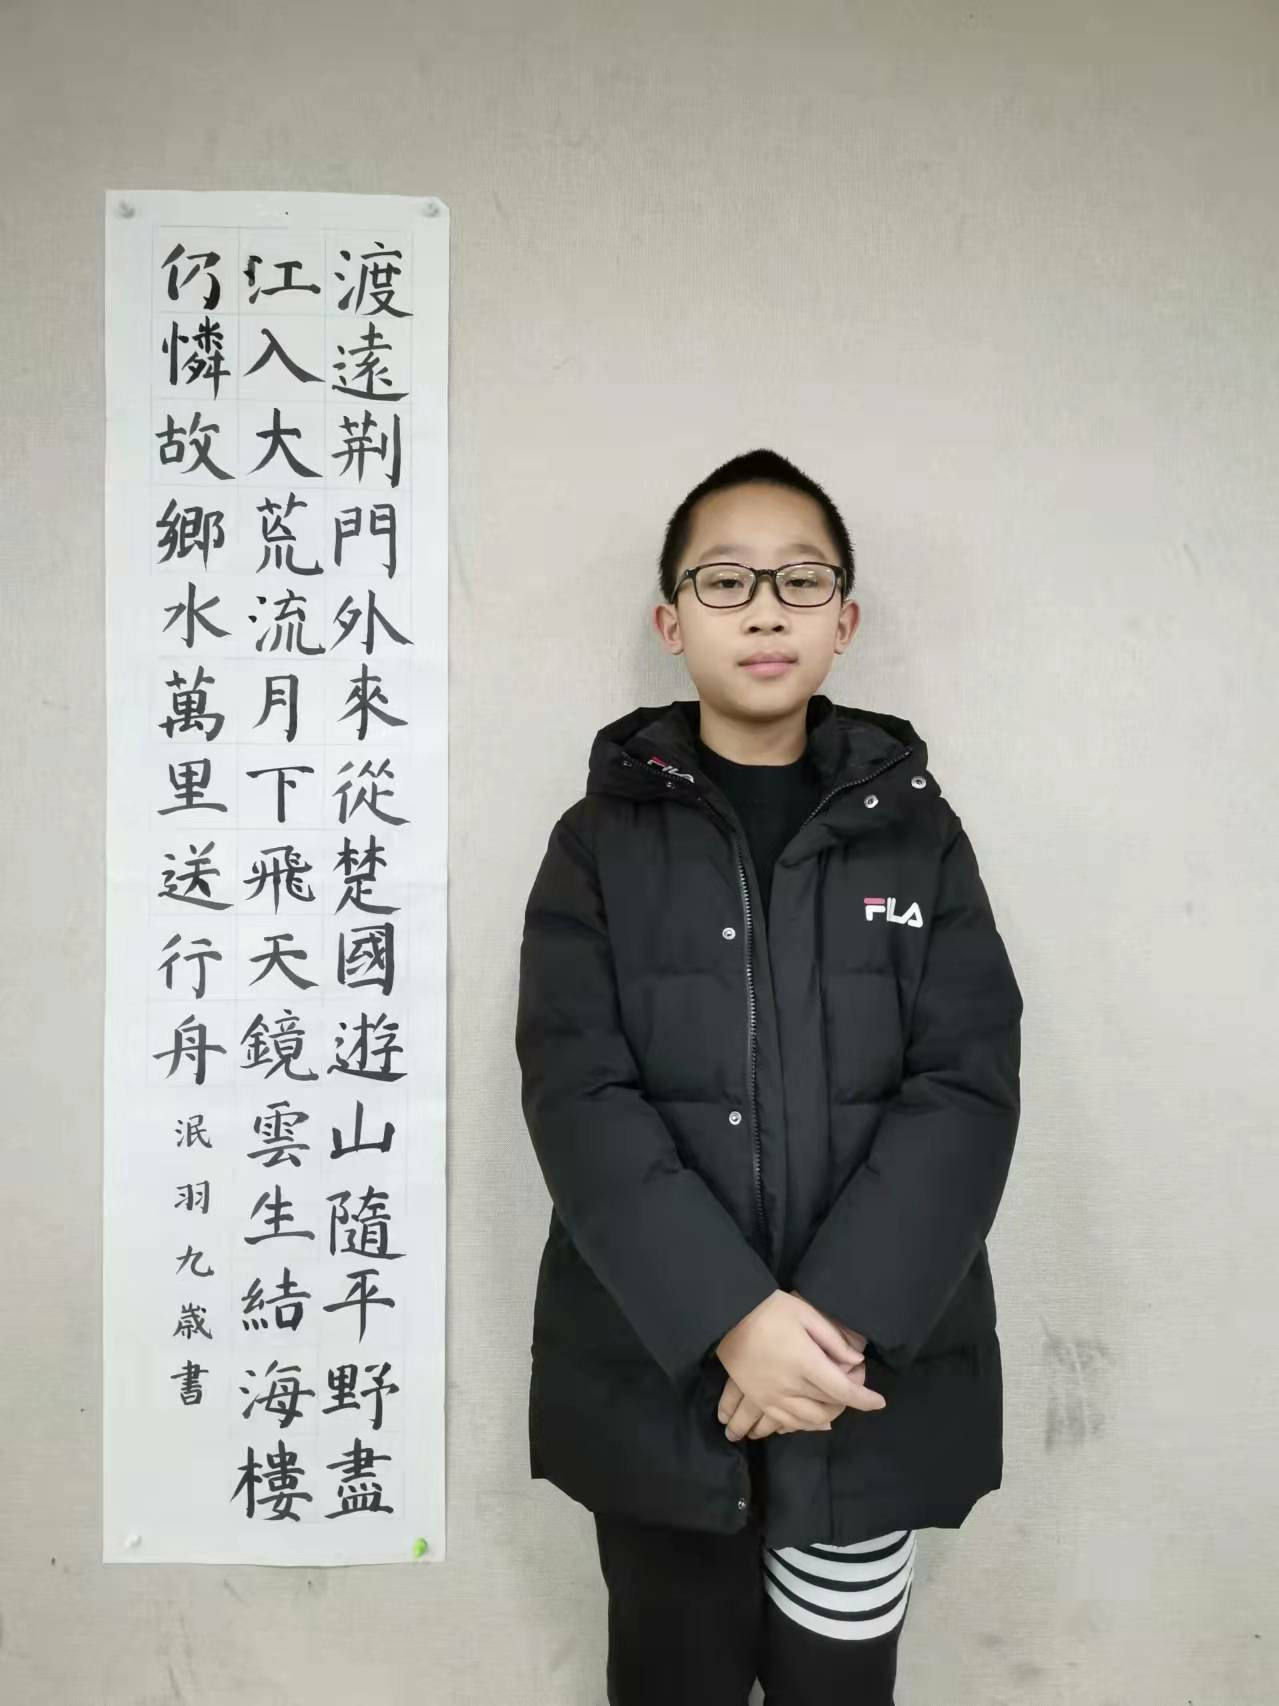 渡遠荆門外來從楚國遊山隨平野盡
江入大荒流月下飛天鏡雲生結海樓
仍憐故鄉水萬里送行舟泯羽九歲書
FILA
FILA